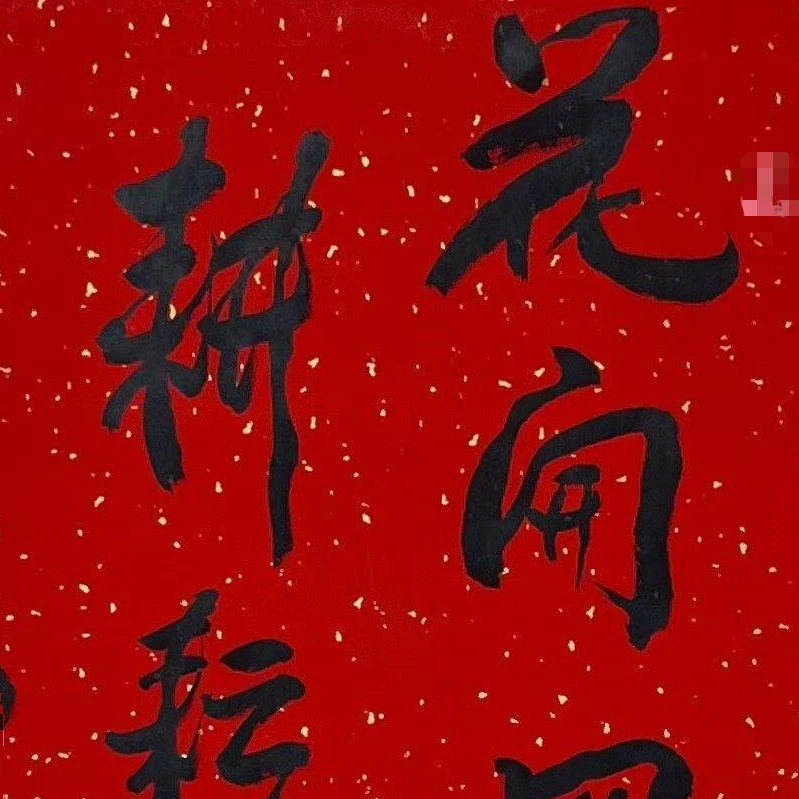 花開
耕耘